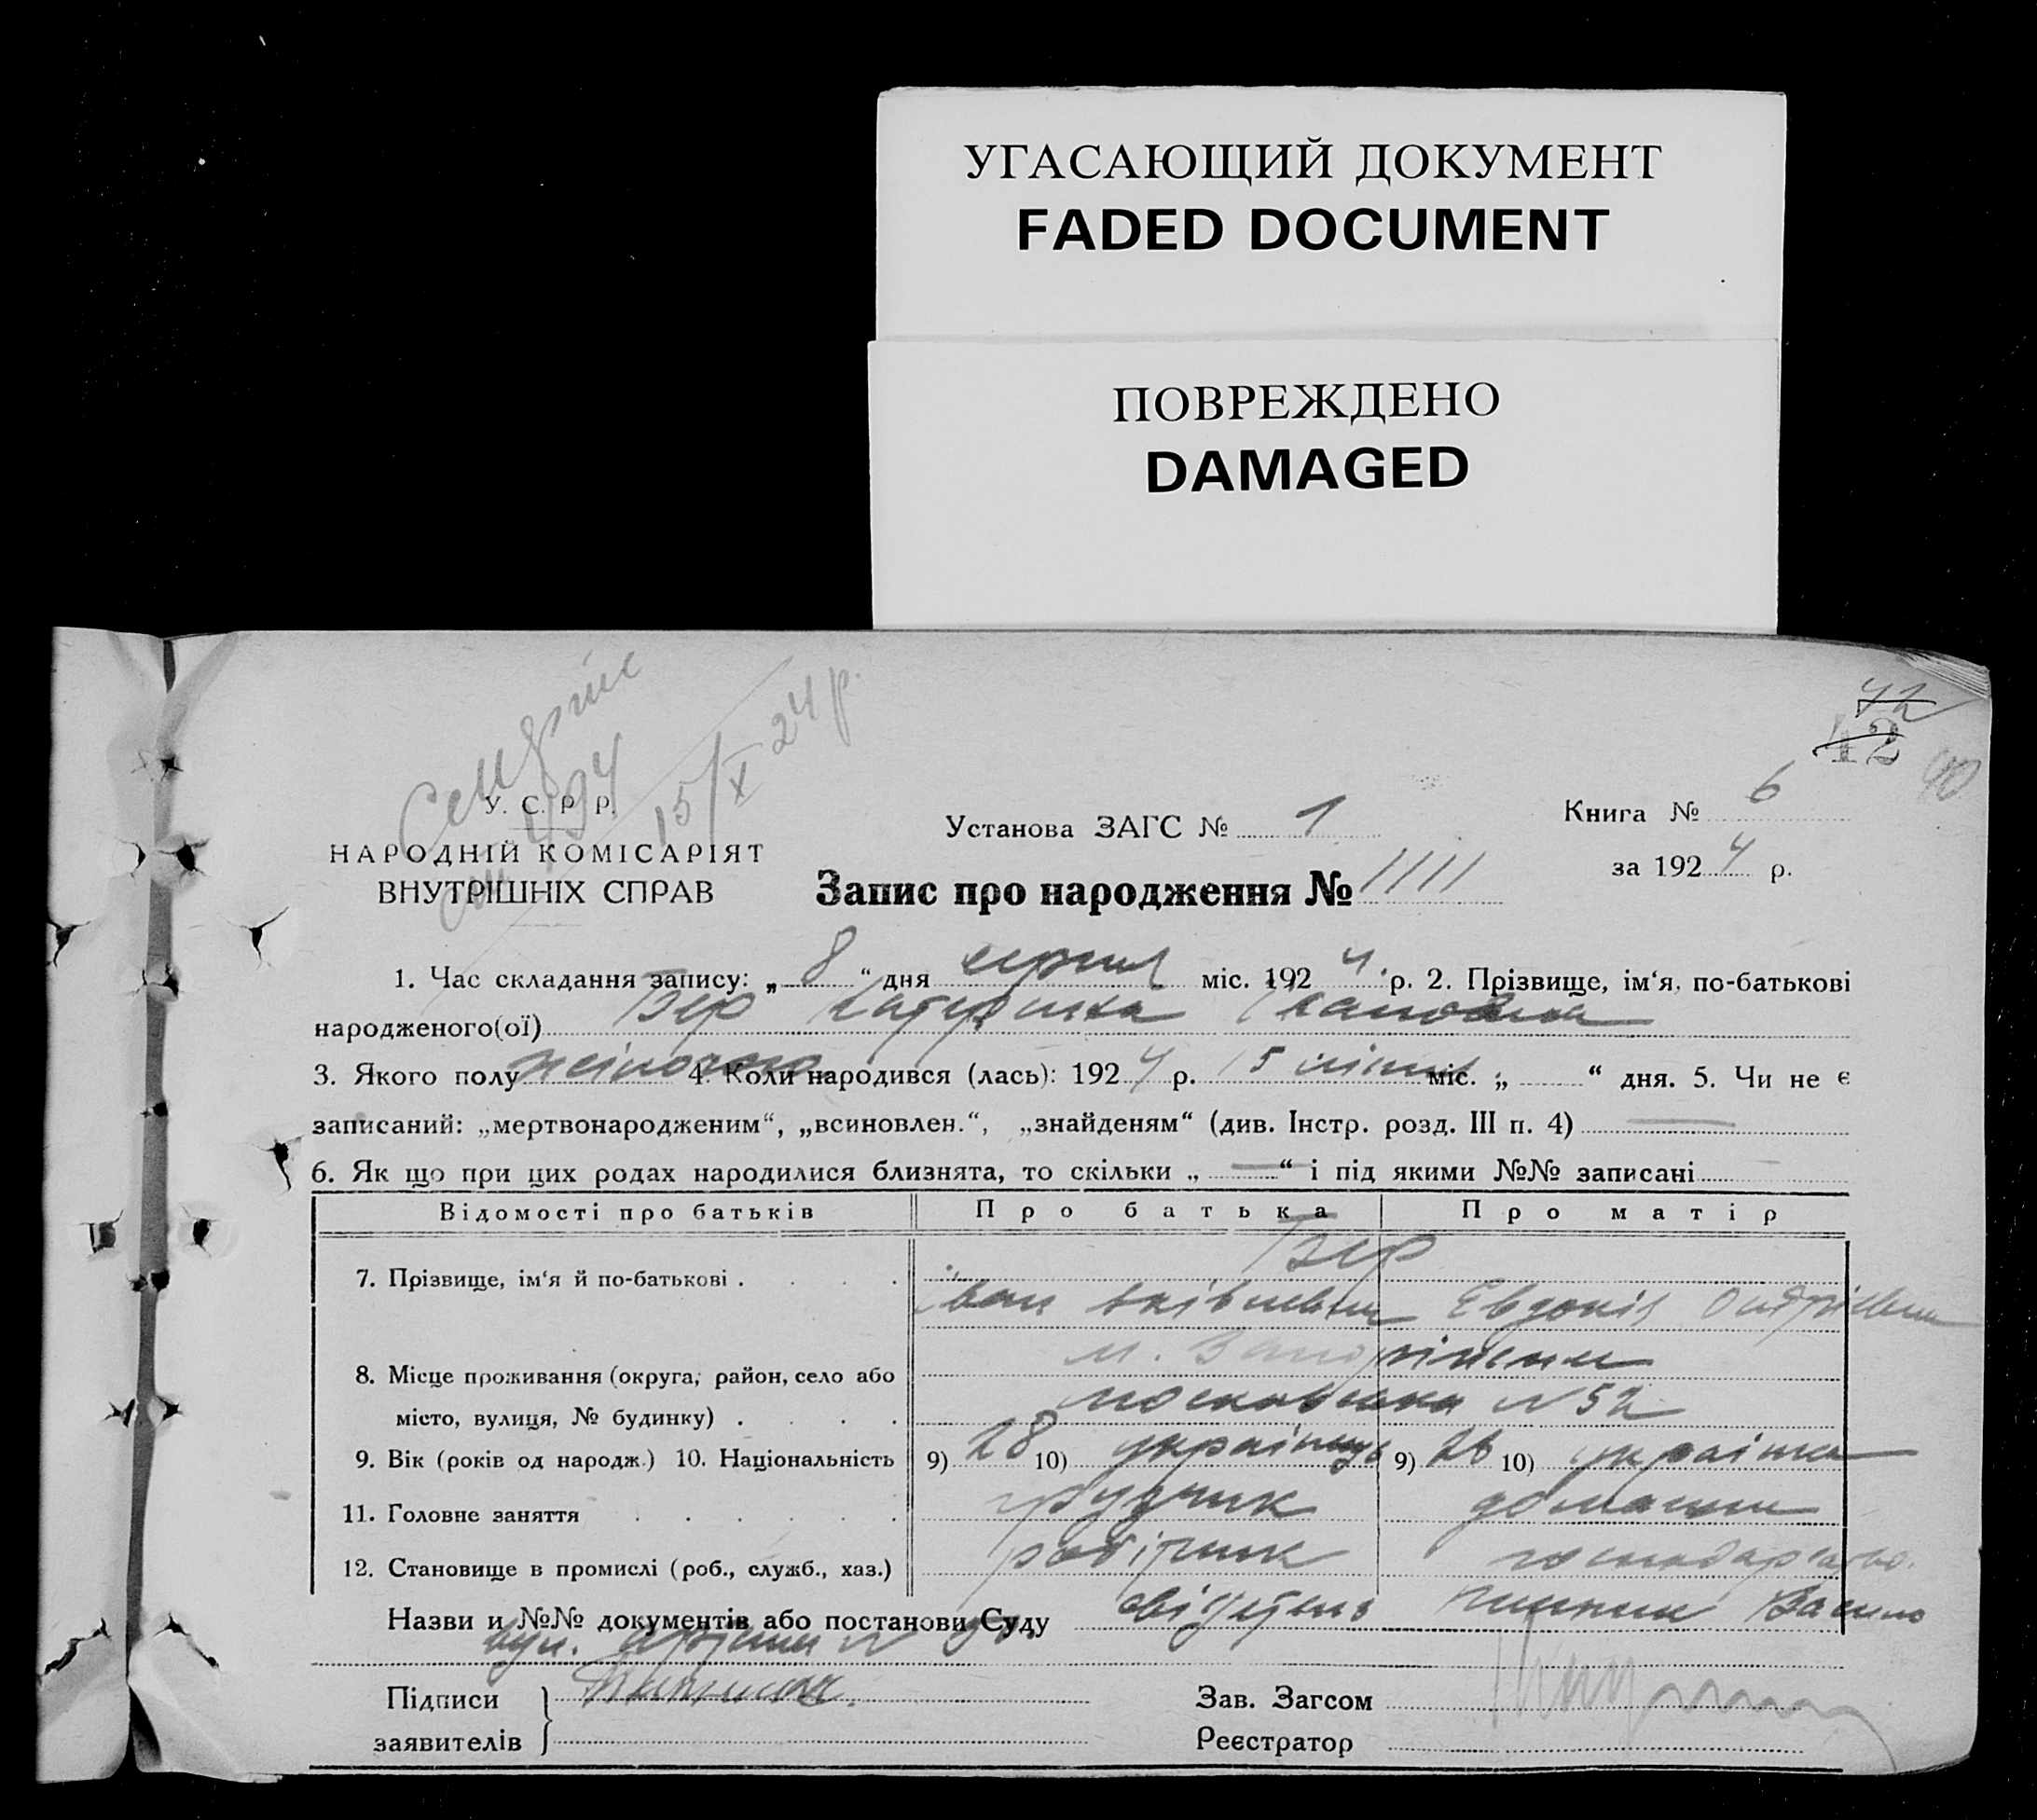 УГАСАЮЩИЙ ДОКУМЕНТ
FADED DOCUMENT
ПОВРЕЖДЕНО
DAMAGED
42
42
40
15/X 24 р.
494
У. С. Р. Р.
НАРОДНІЙ КОМІСАРІЯТ
ВНУТРІШНІХ СПРАВ
Установа ЗАГС № 1
Книга № 6
за 1924 р.
Запис про народження № 1111
1. Час складання запису: „ 8 “ дня серпня міс. 1924 р. 2. Прізвище, ім‘я, по-батькові
народженого(ої) Бер Катерина Івановна
3. Якого полу жіночого 4. Коли народився (лась): 1924 р. 5 міс. „ “ дня. 5. Чи не є
записаний: „мертвонародженим“, „всиновлен.“, „знайденям“ (див. Інстр. розд. III п. 4) —
6. Як що при цих родах народилися близнята, то скільки „ — “ і під якими №№ записані
Відомості про батьків Про батька Про матір
7. Прізвище, ім‘я й по-батькові . . . . Бер
Іван Яківлевич Евдокія Андріівна
8. Місце проживання (округа, район, село або м. Запоріжжя
місто, вулиця, № будинку) . . . . московська № 52
9. Вік (років од народж.) 10. Національність 9) 28 10) українець 9) 26 10) українка
11. Головне заняття . . . . . . домашнє
12. Становище в промислі (роб., служб., хаз.) робітник господарство.
Назви и №№ документів або постанови Суду
вул.
Підписи
заявителів
Зав. Загсом
Реєстратор